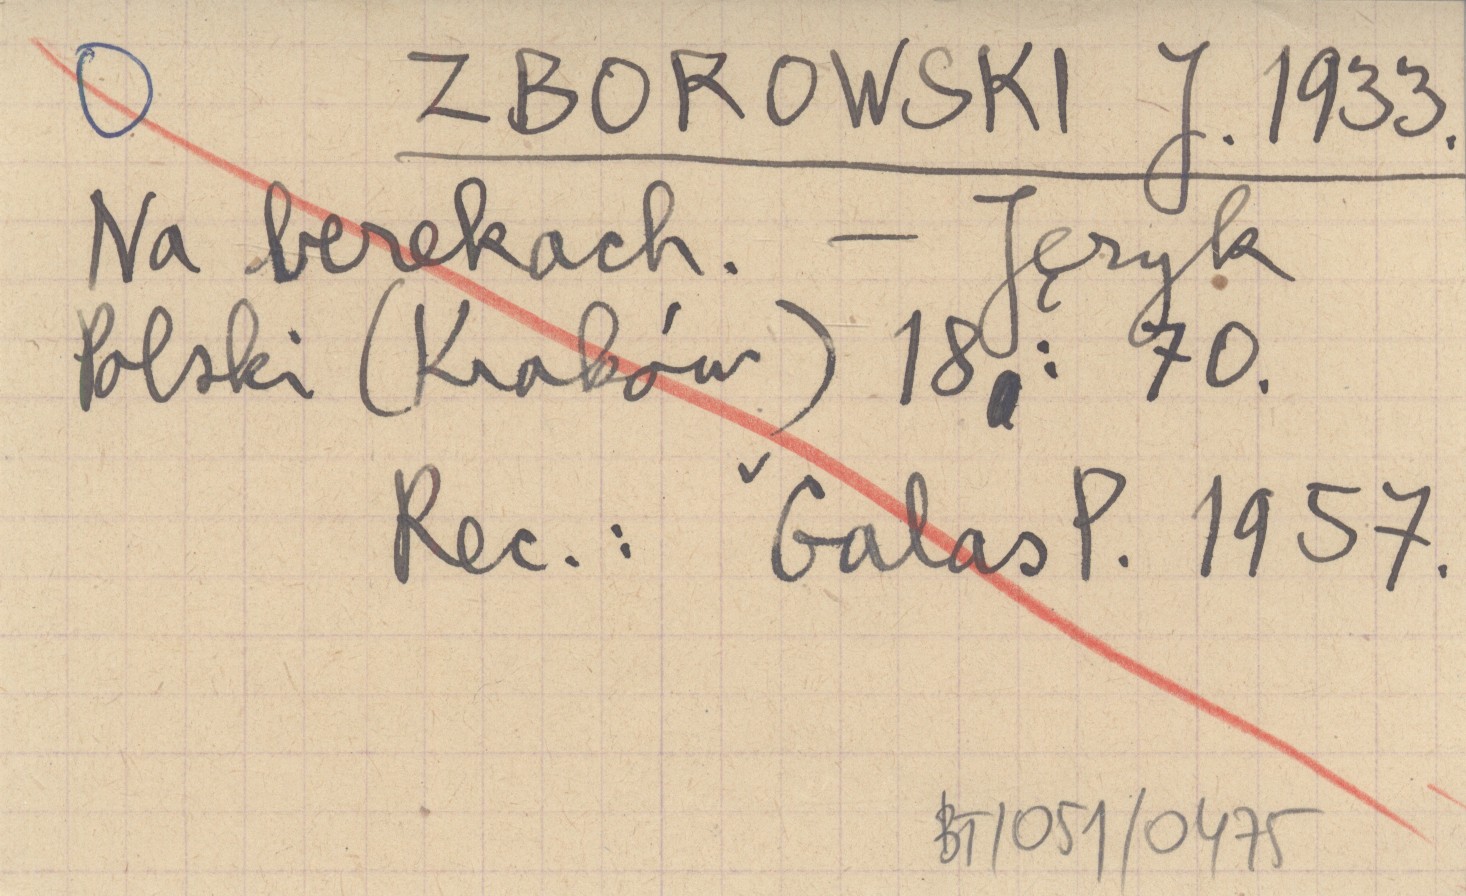 ZBOROWSKI J. 1933.
Na berekach. — Język
Polski (Kraków) 18 : 70.
Rec. : Galas P. 1957.
BT/051/0475